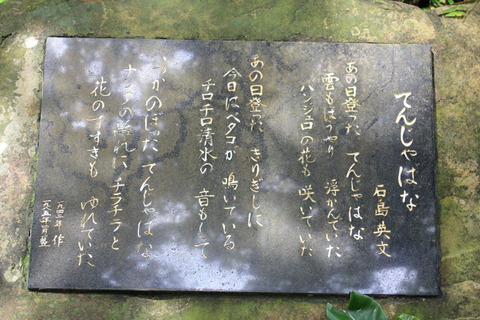 てんじゃはな
石島英文
あの日登った てんじゃはな
雲もほうやり 浮かんでいた
ハンジェロの花も 咲いていた
あの日登った きりぎしに
今日はペタコが 鳴いている
チロチロ清水の 音もして
いつかのぼった てんじゃはな
ナンヨの晴れに チラチラと
花のすすきも ゆれていた
作